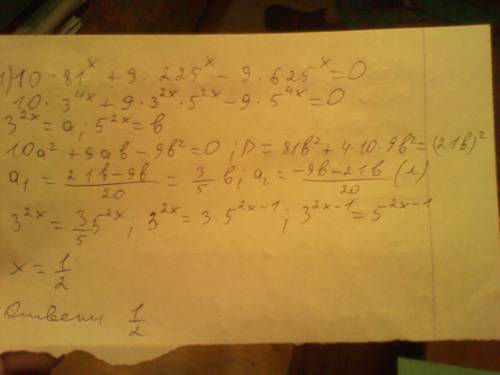 1) 10 · 81^x + 9 · 225^x − 9 · 625^x = 0
10 · 3^{4x} + 9 · 3^{2x} · 5^{2x} − 9 · 5^{4x} = 0
3^{2x} = a; 5^{2x} = b
10a² + 9ab − 9b² = 0; D = 81b² + 4·10·9b² = (21b)²
a₁ = (21b − 9b)/20 = 3/5 b; a₂ = (−9b − 21b)/20 (л)
3^{2x} = 3/5 5^{2x}; 3^{2x} = 3 · 5^{2x−1}; 3^{2x−1} = 5^{2x−1}
x = 1/2
Ответ: 1/2